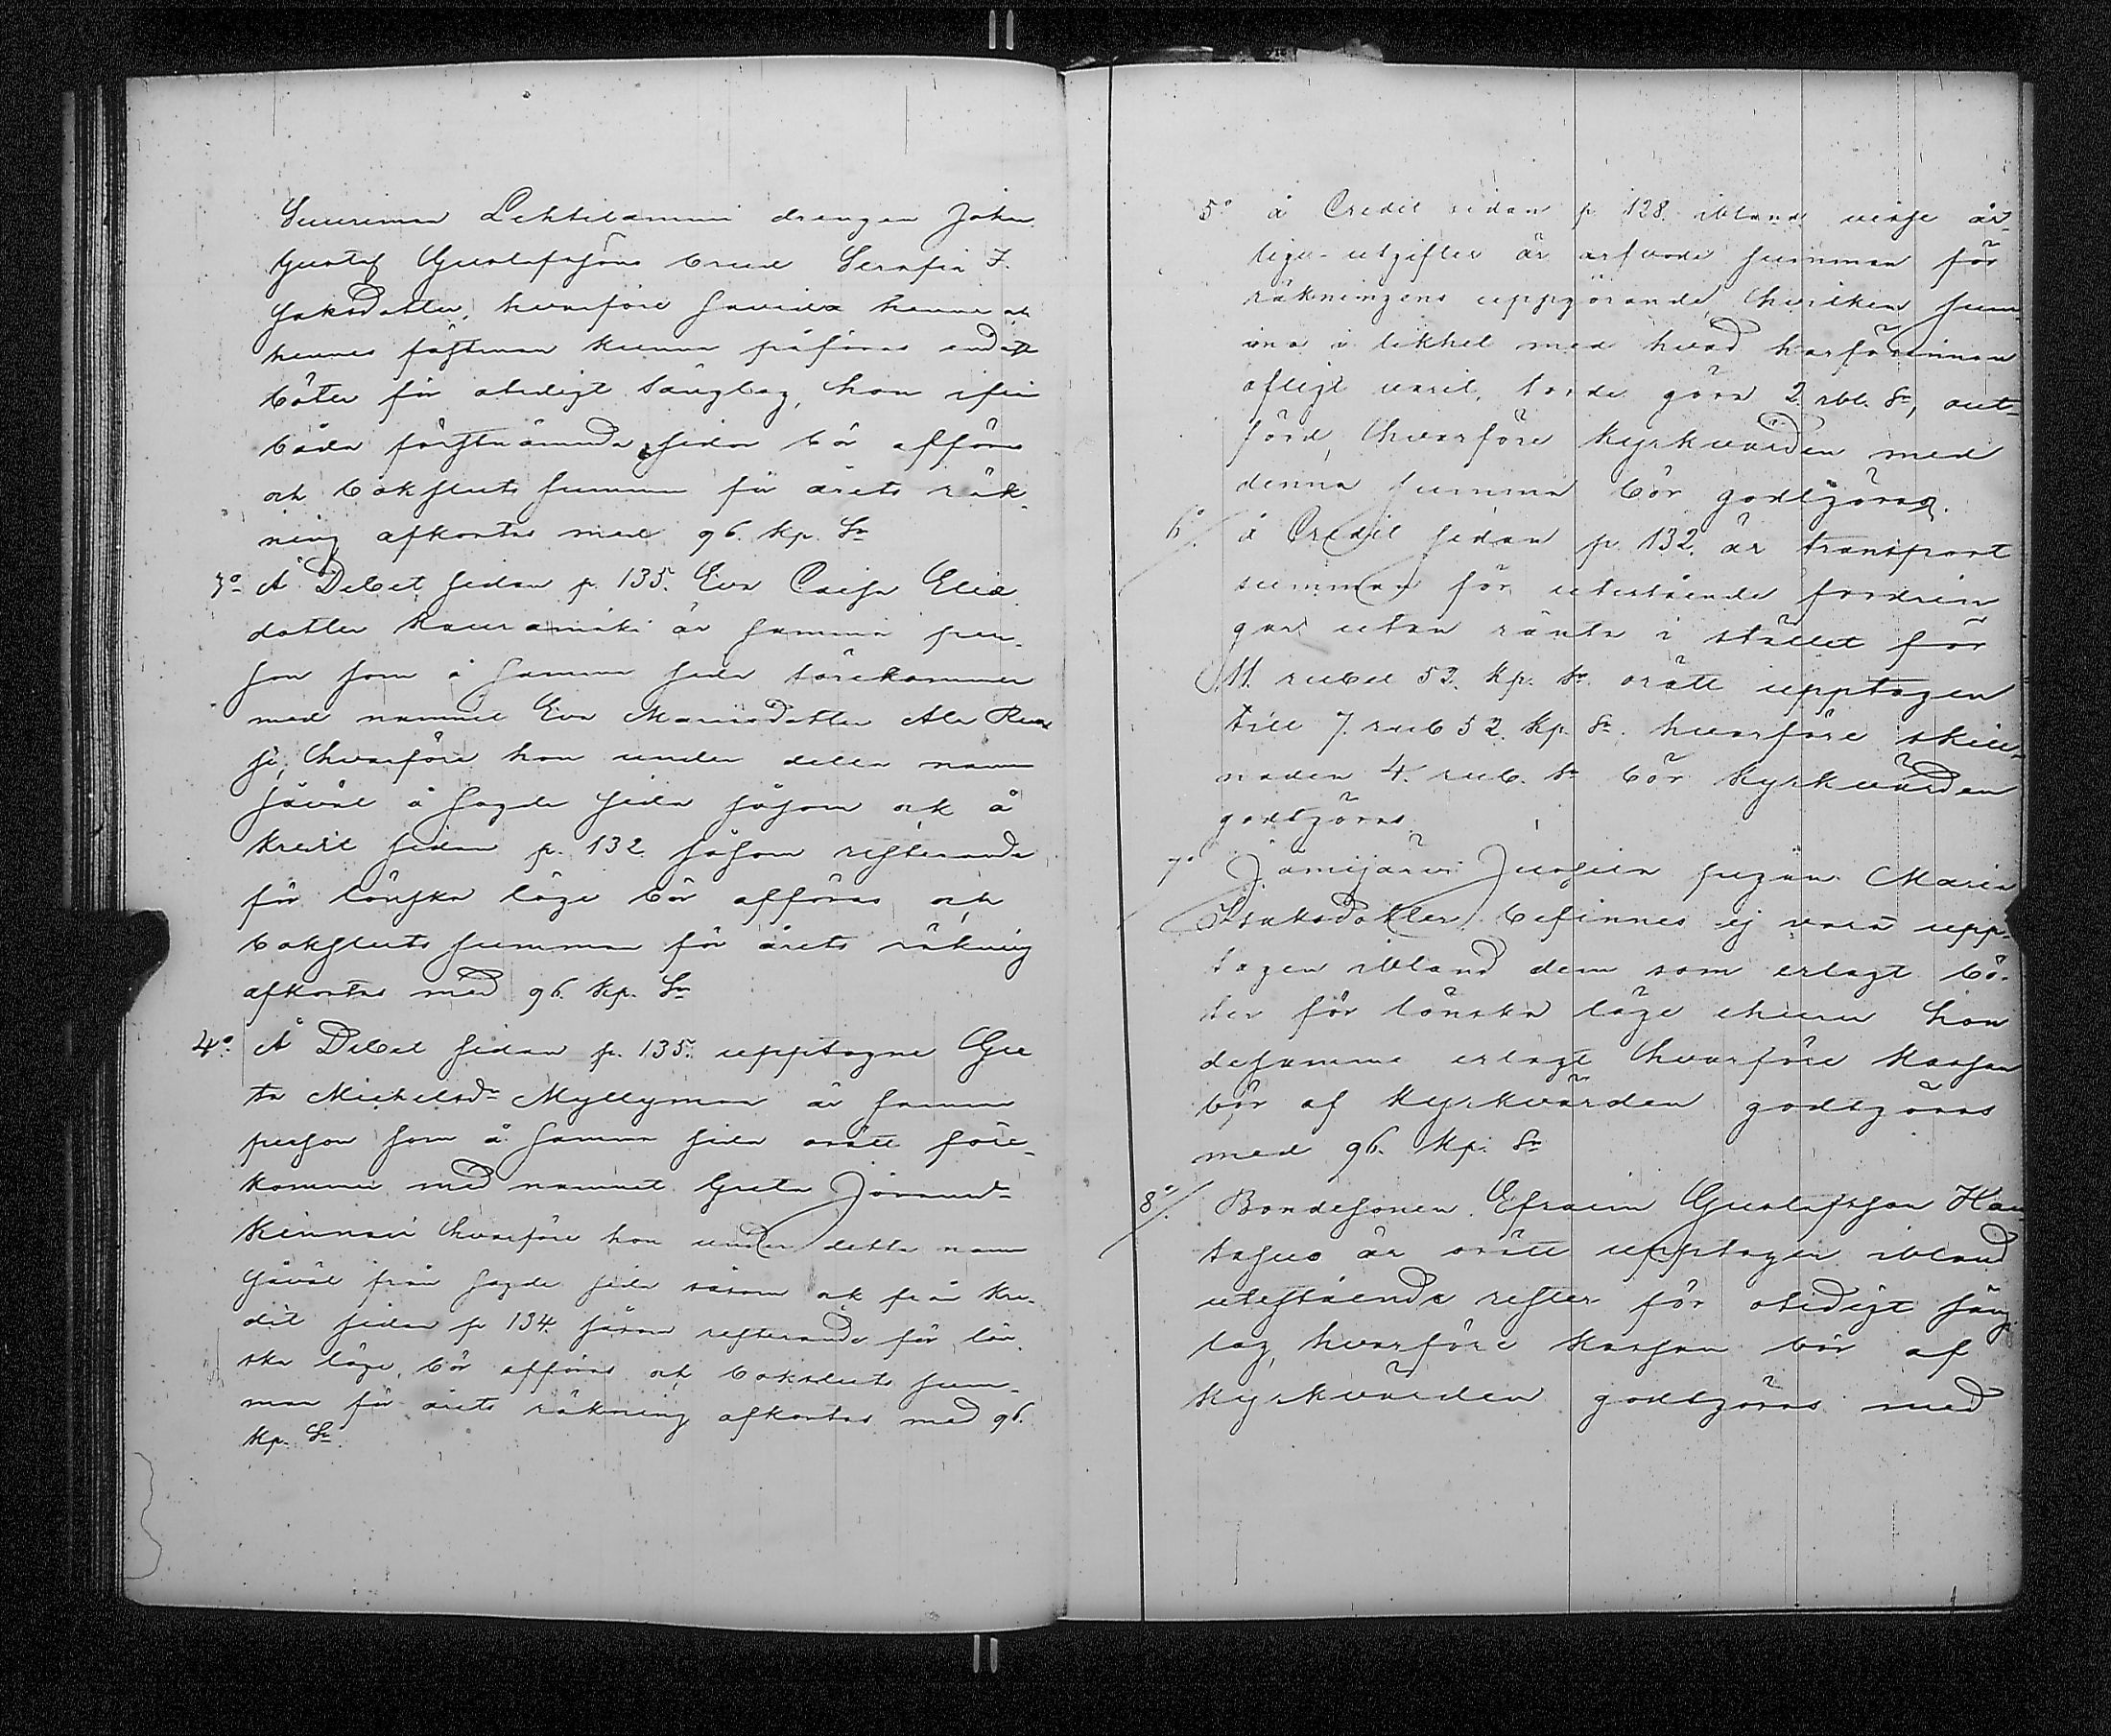 Lehtilammi drengen Johan
Gustaf Gustafssons brud Serafia J.
Jaksdotter, hvarföre henne och
hennes fästman kunna påföras endast
böter för otidigt sänglag, hon ifrån
båda förstnämnda sidor bör afföras
och bokslutssumman för årets räk-
ning afkortas med 96. kp. Sr
3o Å Debet sidan p. 135. Eva Caisa Elia
dotter är samma per-
son som å samma sida förekommer
med namnet Eva Mariasdotter Ala
si, hvarföre hon under detta namn
såväl å sagde sida såsom ock å
kredit sidan p. 132. såsom resterande
för lönska läge bör afföras och
bokslutssumman för årets räkning
afkortas med 96. kp. Sr
4o. Å Debet sidan p. 135. upptagne Gre
ta Michelsdr Myllymaa är samma
person som å samma sida orätt före-
kommer med namnet Greta
hvarföre hon under detta namn
såväl från sagde sida såsom ock från kre-
dit sidan p 134. såsom resterande för lön
ska läge, bör afföras och bokslutssum-
man för årets räkning afkortas med 96.
kp. Sr.
5o å Credit sidan p. 128. ibland vissa år-
liga utgifter är arfvode summan för
räkningens uppgörande, hvilken sum
ma i likhet med hvad härförinnan
öfligt varit, borde göra 2. rbl. Sr, out-
förd, hvarföre kyrkvärden med
denna summa bör godtgöras.
6o/. å Credit sidan p. 132. är transport
summan för utestående fordrin
gar utan ränta i stället för
11. rubel 52. kp. Sr. orätt upptagen
till 7. rub 52. kp. Sr. hvarföre skill-
naden 4. rub. Sr bör kyrkvärden
godtgöras.
7o Jämijärvi Jussila pigan Maria
Isaksdotter befinnes ej vara upp-
tagen ibland dem som erlagt bö-
ter för lönska läge ehuru hon
desamma erlagt hvarföre kassan
bör af kyrkvärden godtgöras
med 96. kp. Sr
8o/. Bondesonen Efraim Gustafsson
är orätt upptagen ibland
utestående rester för otidigt säng
lag, hvarföre kassan bör af
kyrkvärden godtgöras med